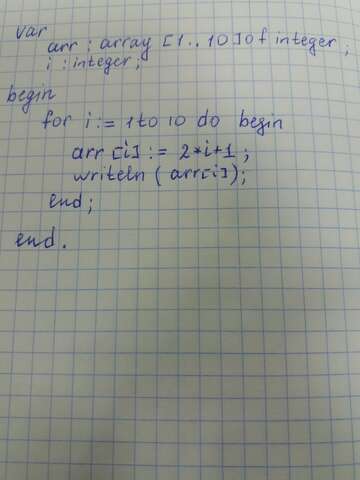 var
arr : array [1..10] of integer;
i : integer;
begin
for i := 1 to 10 do begin
arr [i] := 2*i+1;
writeln (arr[i]);
end;
end.